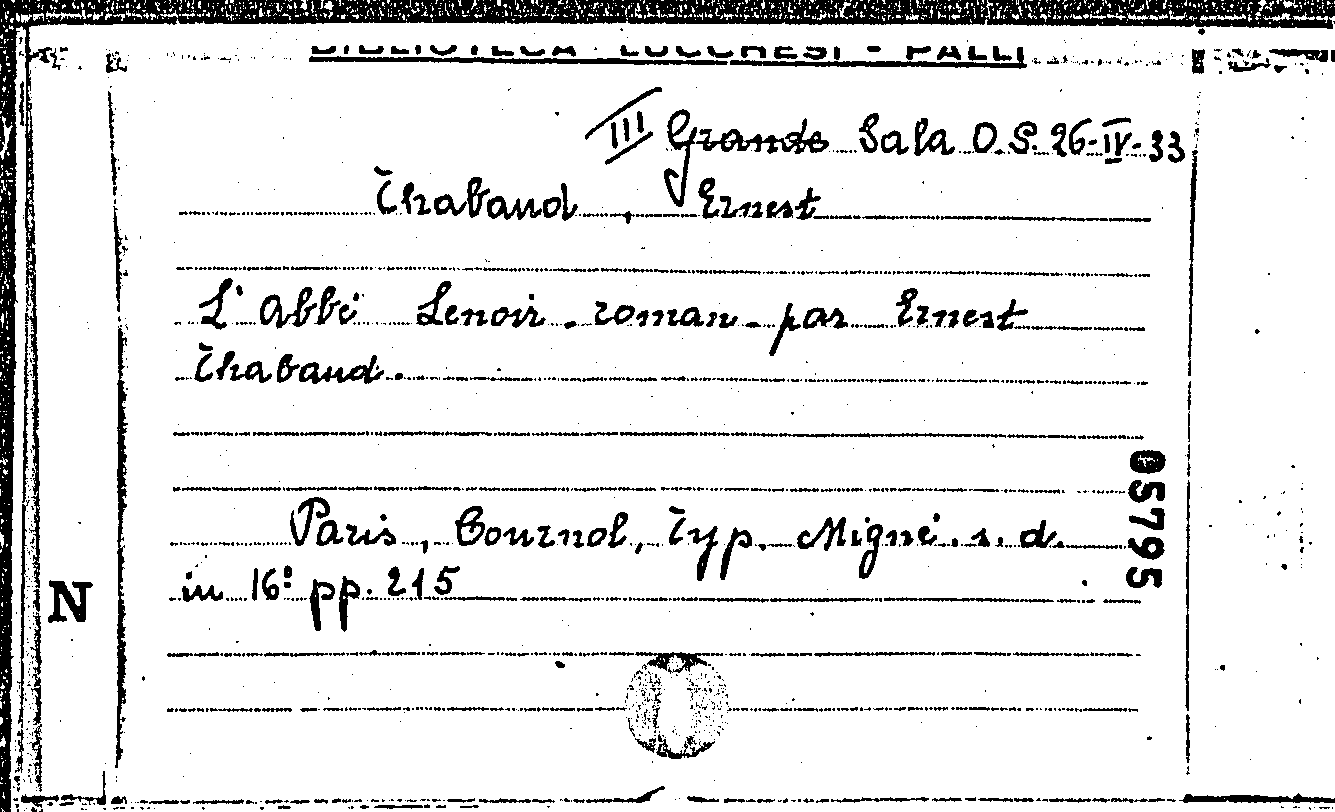 BIBLIOTECA LUCCHESI - PALLI
III Grande Sala O.S. 26-IV-33
Thabaud, Ernest
L'Abbé Lenoir - roman - par Ernest
Thabaud.
Paris, Typ. Migné. s. d.
in 16° pp. 215
05795
N